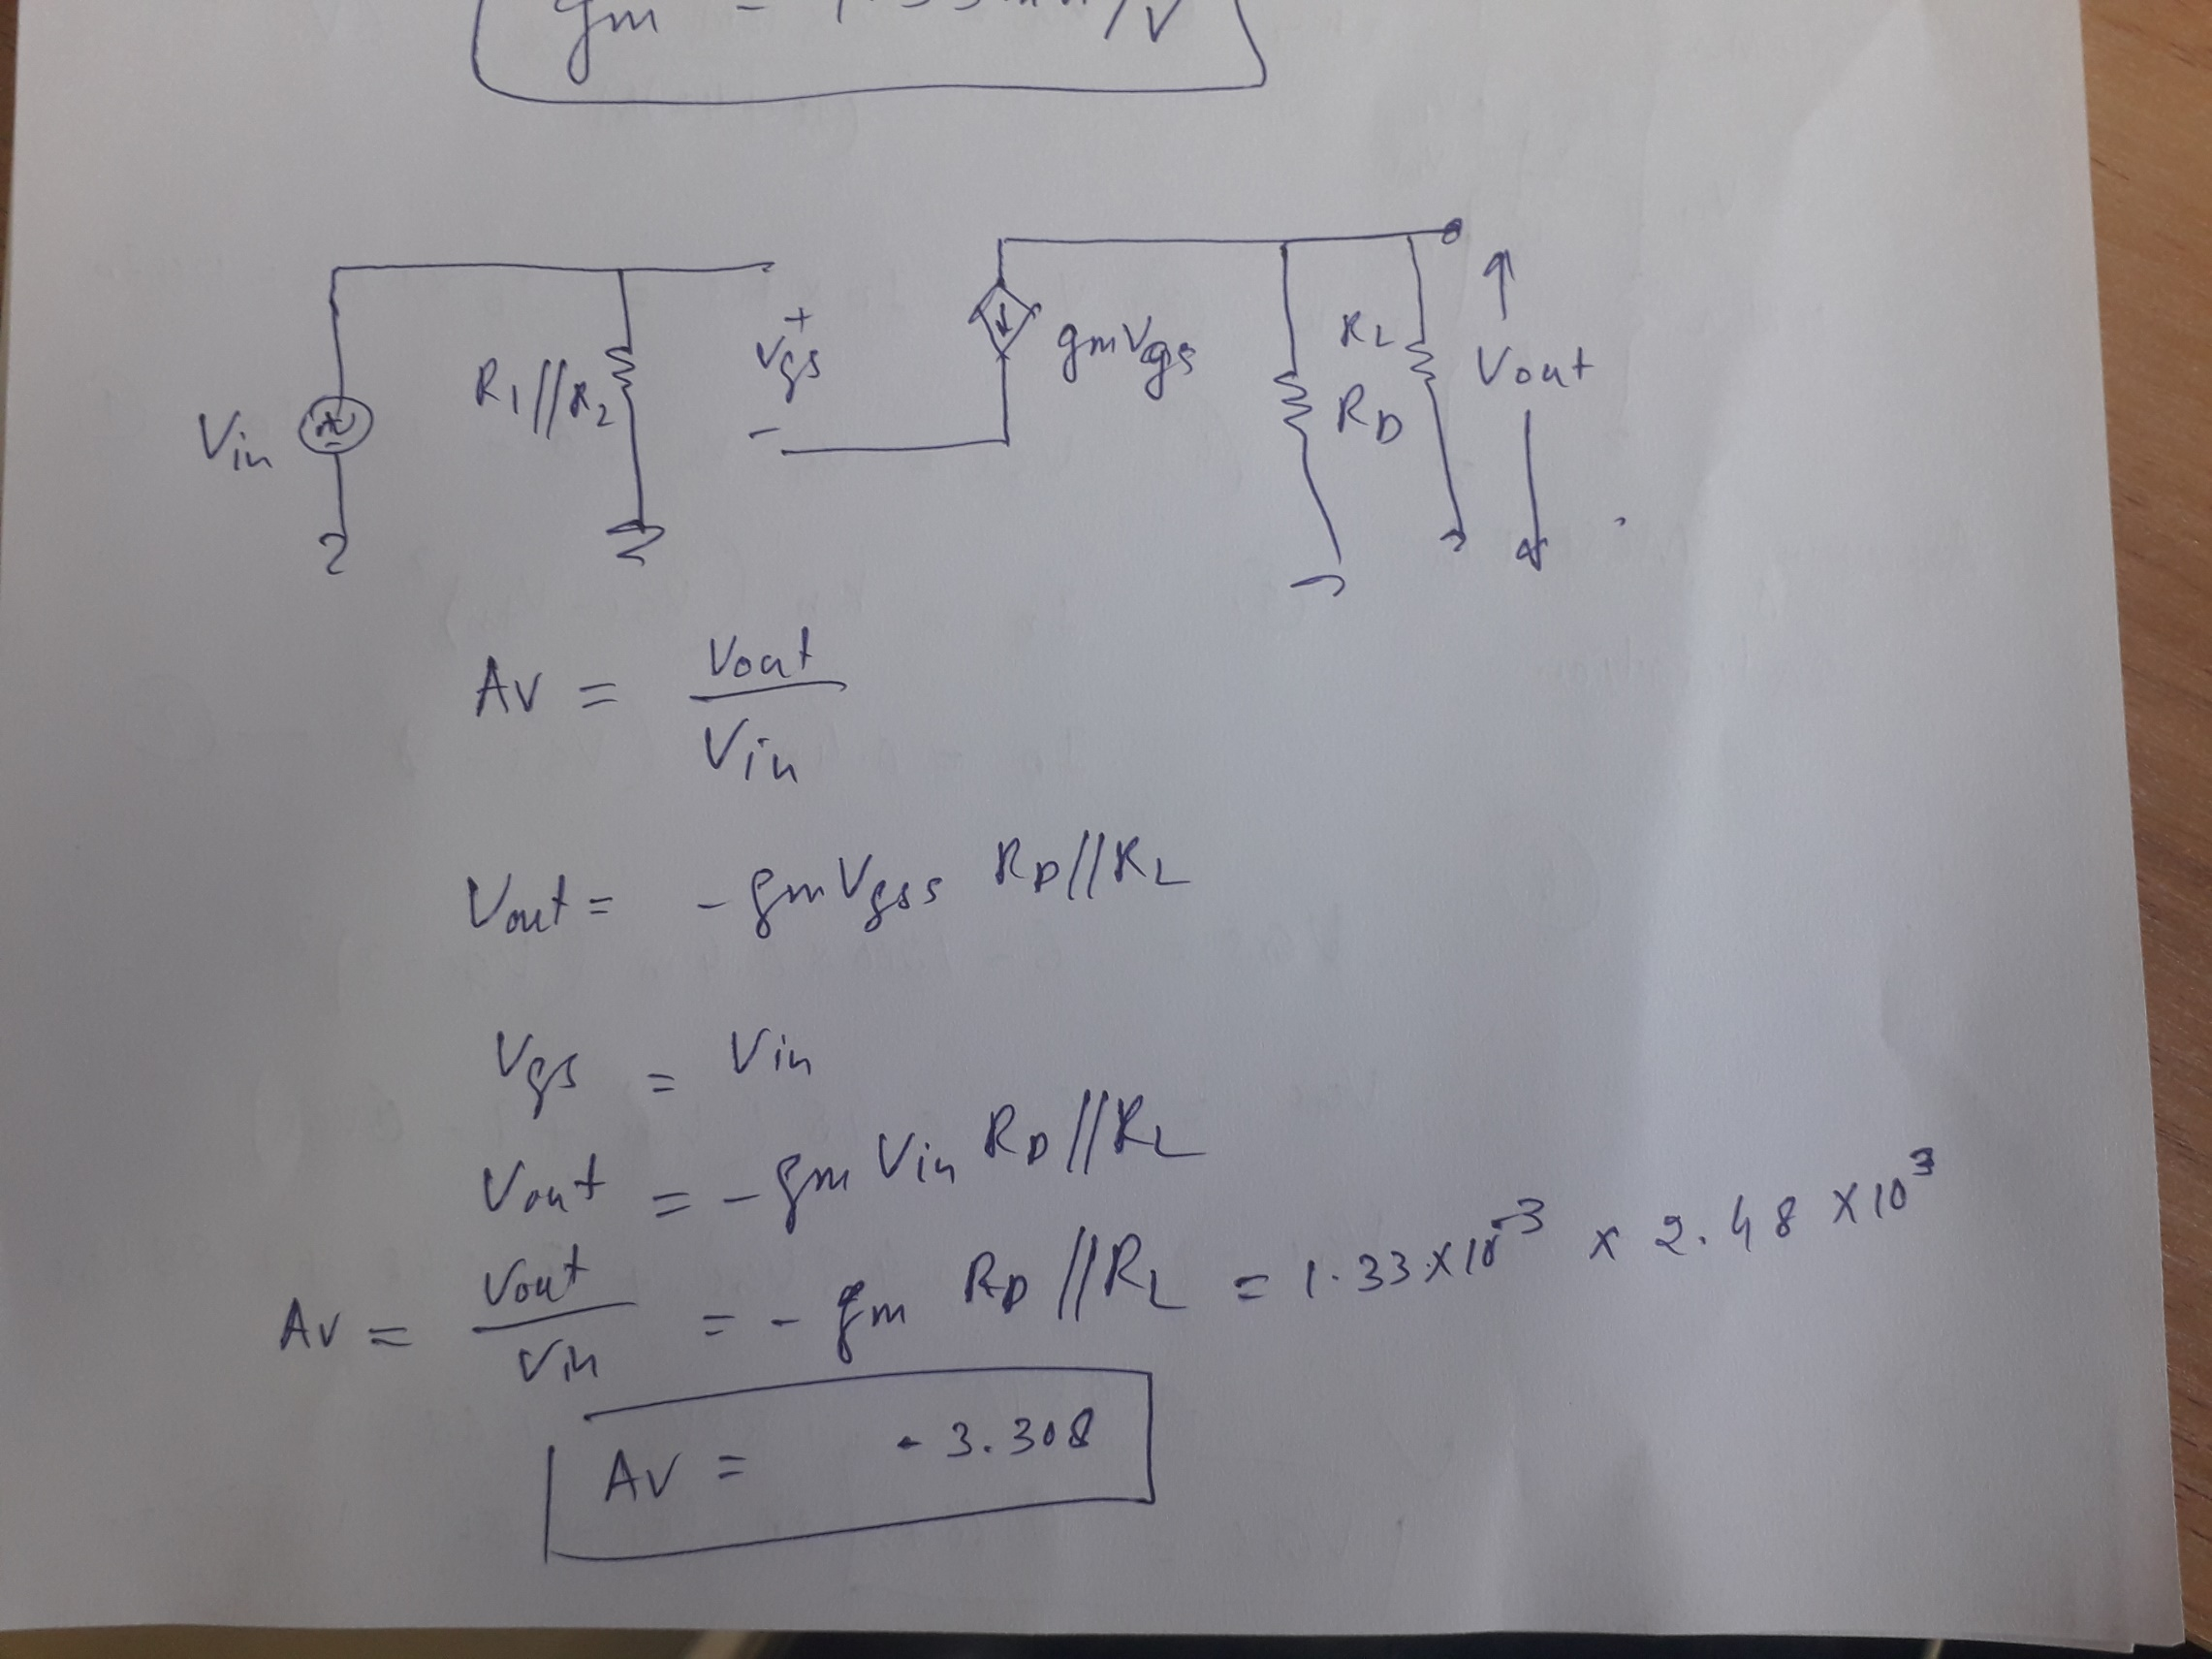 gm = 1.33mA/V
Vin
R1//R2
+
Vgs
-
gmVgs
RL
RD
Vout
Av = Vout / Vin
Vout = - gmVgss RD//RL
Vgs = Vin
Vout = - gm Vin RD//RL
Av = Vout / Vin = - gm RD//RL = 1.33x10^-3 x 2.48 x10^3
Av = -3.308